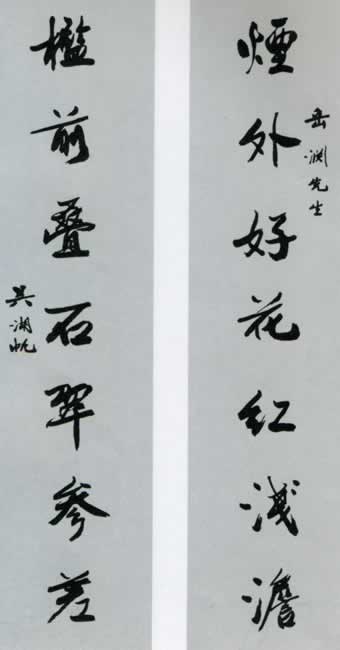 煙外好花紅淺澹
岳淵先生
檻前疊石翠參差
吳湖帆